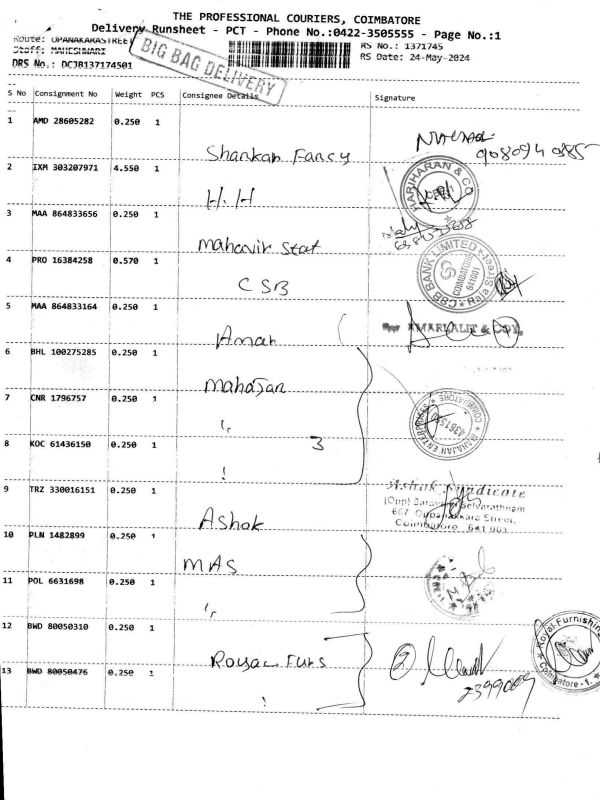 THE PROFESSIONAL COURIERS, COIMBATORE
Delivery Runsheet - PCT - Phone No.:0422-3505555 - Page No.:1
Route: OPANAKARASTREET
Staff: MAHESHWARI
DRS No.: DCJB137174501
BIG BAG DELIVERY
RS No.: 1371745
RS Date: 24-May-2024
S No Consignment No Weight PCS Consignee Details Signature
1 AMD 28605282 0.250 1 Shankar Fancy
2 IXM 303207971 4.550 1 H.H
HARIHARAN & CO
3 MAA 864833656 0.250 1 Mahavir Stat
4 PRO 16384258 0.570 1 CSB
CSB BANK LIMITED
Raja Street
COIMBATORE
641001
5 MAA 864833164 0.250 1 Aman
AMARLALIT & COY.
6 BHL 100275285 0.250 1 Mahajan
7 CNR 1796757 0.250 1 "
MAHAJAN ENTERPRISES
COIMBATORE
8 KOC 61436150 0.250 1 "
3
9 TRZ 330016151 0.250 1 Ashok
Ashok Syndicate
(Opp) Saravana Selvarathnam
667 Oppanakkara Street,
Coimbatore 641 001
10 PLN 1482899 0.250 1 MAS
11 POL 6631698 0.250 1 "
12 BWD 80050310 0.250 1 Royal Furs
2
Royal Furnishing
Coimbatore - 1.
13 BWD 80050476 0.250 1 "